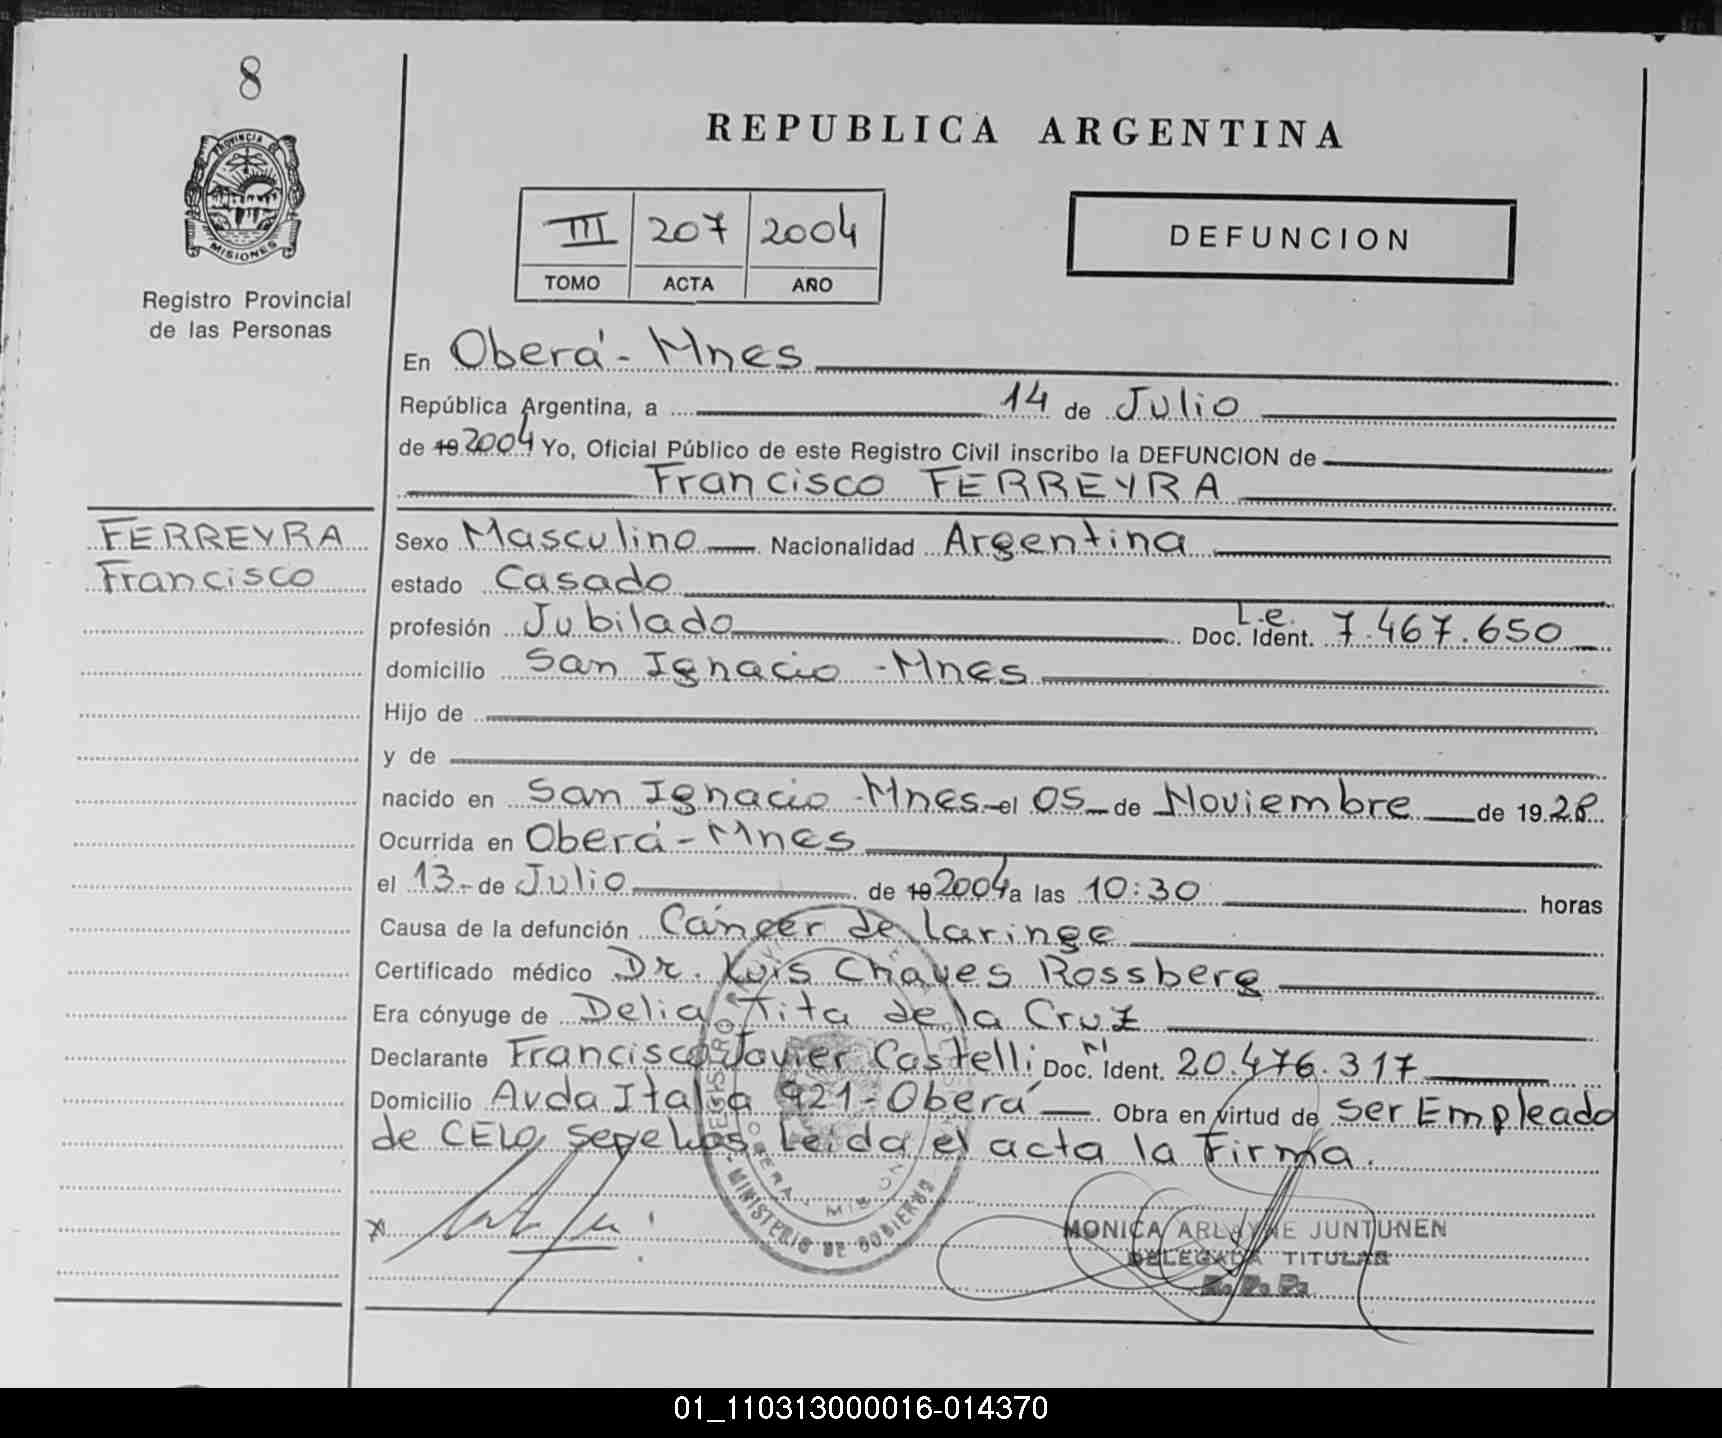 8
PROVINCIA DE
MISIONES
Registro Provincial
de las Personas
REPUBLICA ARGENTINA
III 207 2004
TOMO ACTA AÑO
DEFUNCION
En Oberá - Mnes
República Argentina, a 14 de Julio
de 19 2004 Yo, Oficial Público de este Registro Civil inscribo la DEFUNCION de
Francisco FERREYRA
FERREYRA
Francisco
Sexo Masculino Nacionalidad Argentina
estado Casado
profesión Jubilado Doc. Ident. L.e. 7.467.650
domicilio San Ignacio - Mnes
Hijo de
y de
nacido en San Ignacio - Mnes - el 05 de Noviembre de 19 28
Ocurrida en Oberá - Mnes
el 13 - de Julio de 19 2004 a las 10:30 horas
Causa de la defunción Cáncer de Laringe
Certificado médico Dr. Luis Chaves Rossberg
Era cónyuge de Delia Tita de la Cruz
Declarante Francisco Javier Castelli Doc. Ident. 20.476.317
Domicilio Avda Italia 921 - Oberá Obra en virtud de ser Empleado
de CELO sepelios Leida el acta la Firma.
MINISTERIO DE GOBIERNO
MONICA ARLAYNE JUNTUNEN
DELEGADA TITULAR
R. P. P.
01_110313000016-014370